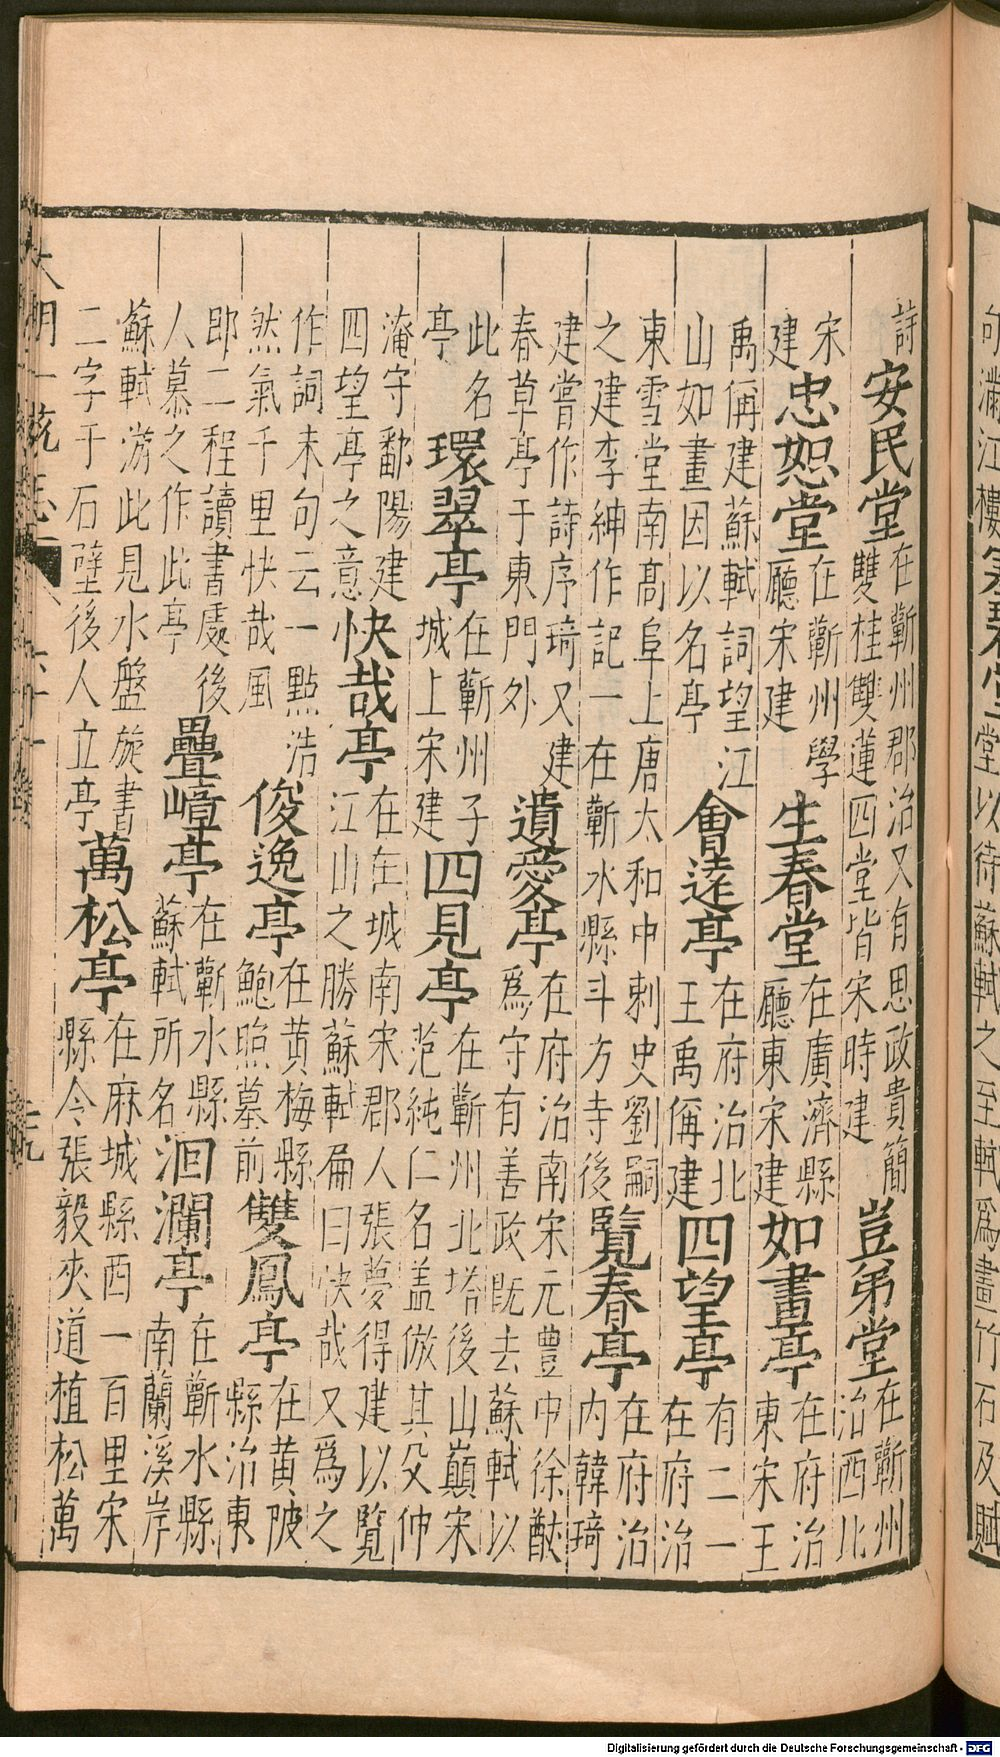 句滿江樓
堂以待蘇軾之至軾為畫竹石及賦
詩安民堂在蘄州郡治又有思政貴簡雙桂雙蓮四堂皆宋時建豈弟堂在蘄州治西北
宋建忠恕堂在蘄州學廳宋建生春堂在廣濟縣廳東宋建如畫亭在府治東宋王
禹偁建蘇軾詞望江山如畫因以名亭會遠亭在府治北王禹偁建四望亭有二一在府治
東雪堂南高阜上唐太和中刺史劉嗣之建李紳作記一在蘄水縣斗方寺後覽春亭在府治內韓琦
建嘗作詩序琦又建春草亭于東門外遺愛亭在府治南宋元豐中徐猷為守有善政既去蘇軾以
此名亭環翠亭在蘄州子城上宋建四見亭在蘄州北塔後山巔宋范純仁名盖倣其父仲
淹守鄱陽建四望亭之意快哉亭在在城南宋郡人張夢得建以覽江山之勝蘇軾扁曰快哉又爲之
作詞末句云一點浩然氣千里快哉風俊逸亭在黄梅縣鮑照墓前雙鳳亭在黄陂縣治東
即二程讀書處後人慕之作此亭疊嶂亭在蘄水縣蘇軾所名洄瀾亭在蘄水縣南蘭溪岸
蘇軾游此見水盤旋書二字于石壁後人立亭萬松亭在麻城縣西一百里宋縣令張毅夾道植松萬
大明一統志
Digitalisierung gefördert durch die Deutsche Forschungsgemeinschaft - DFG